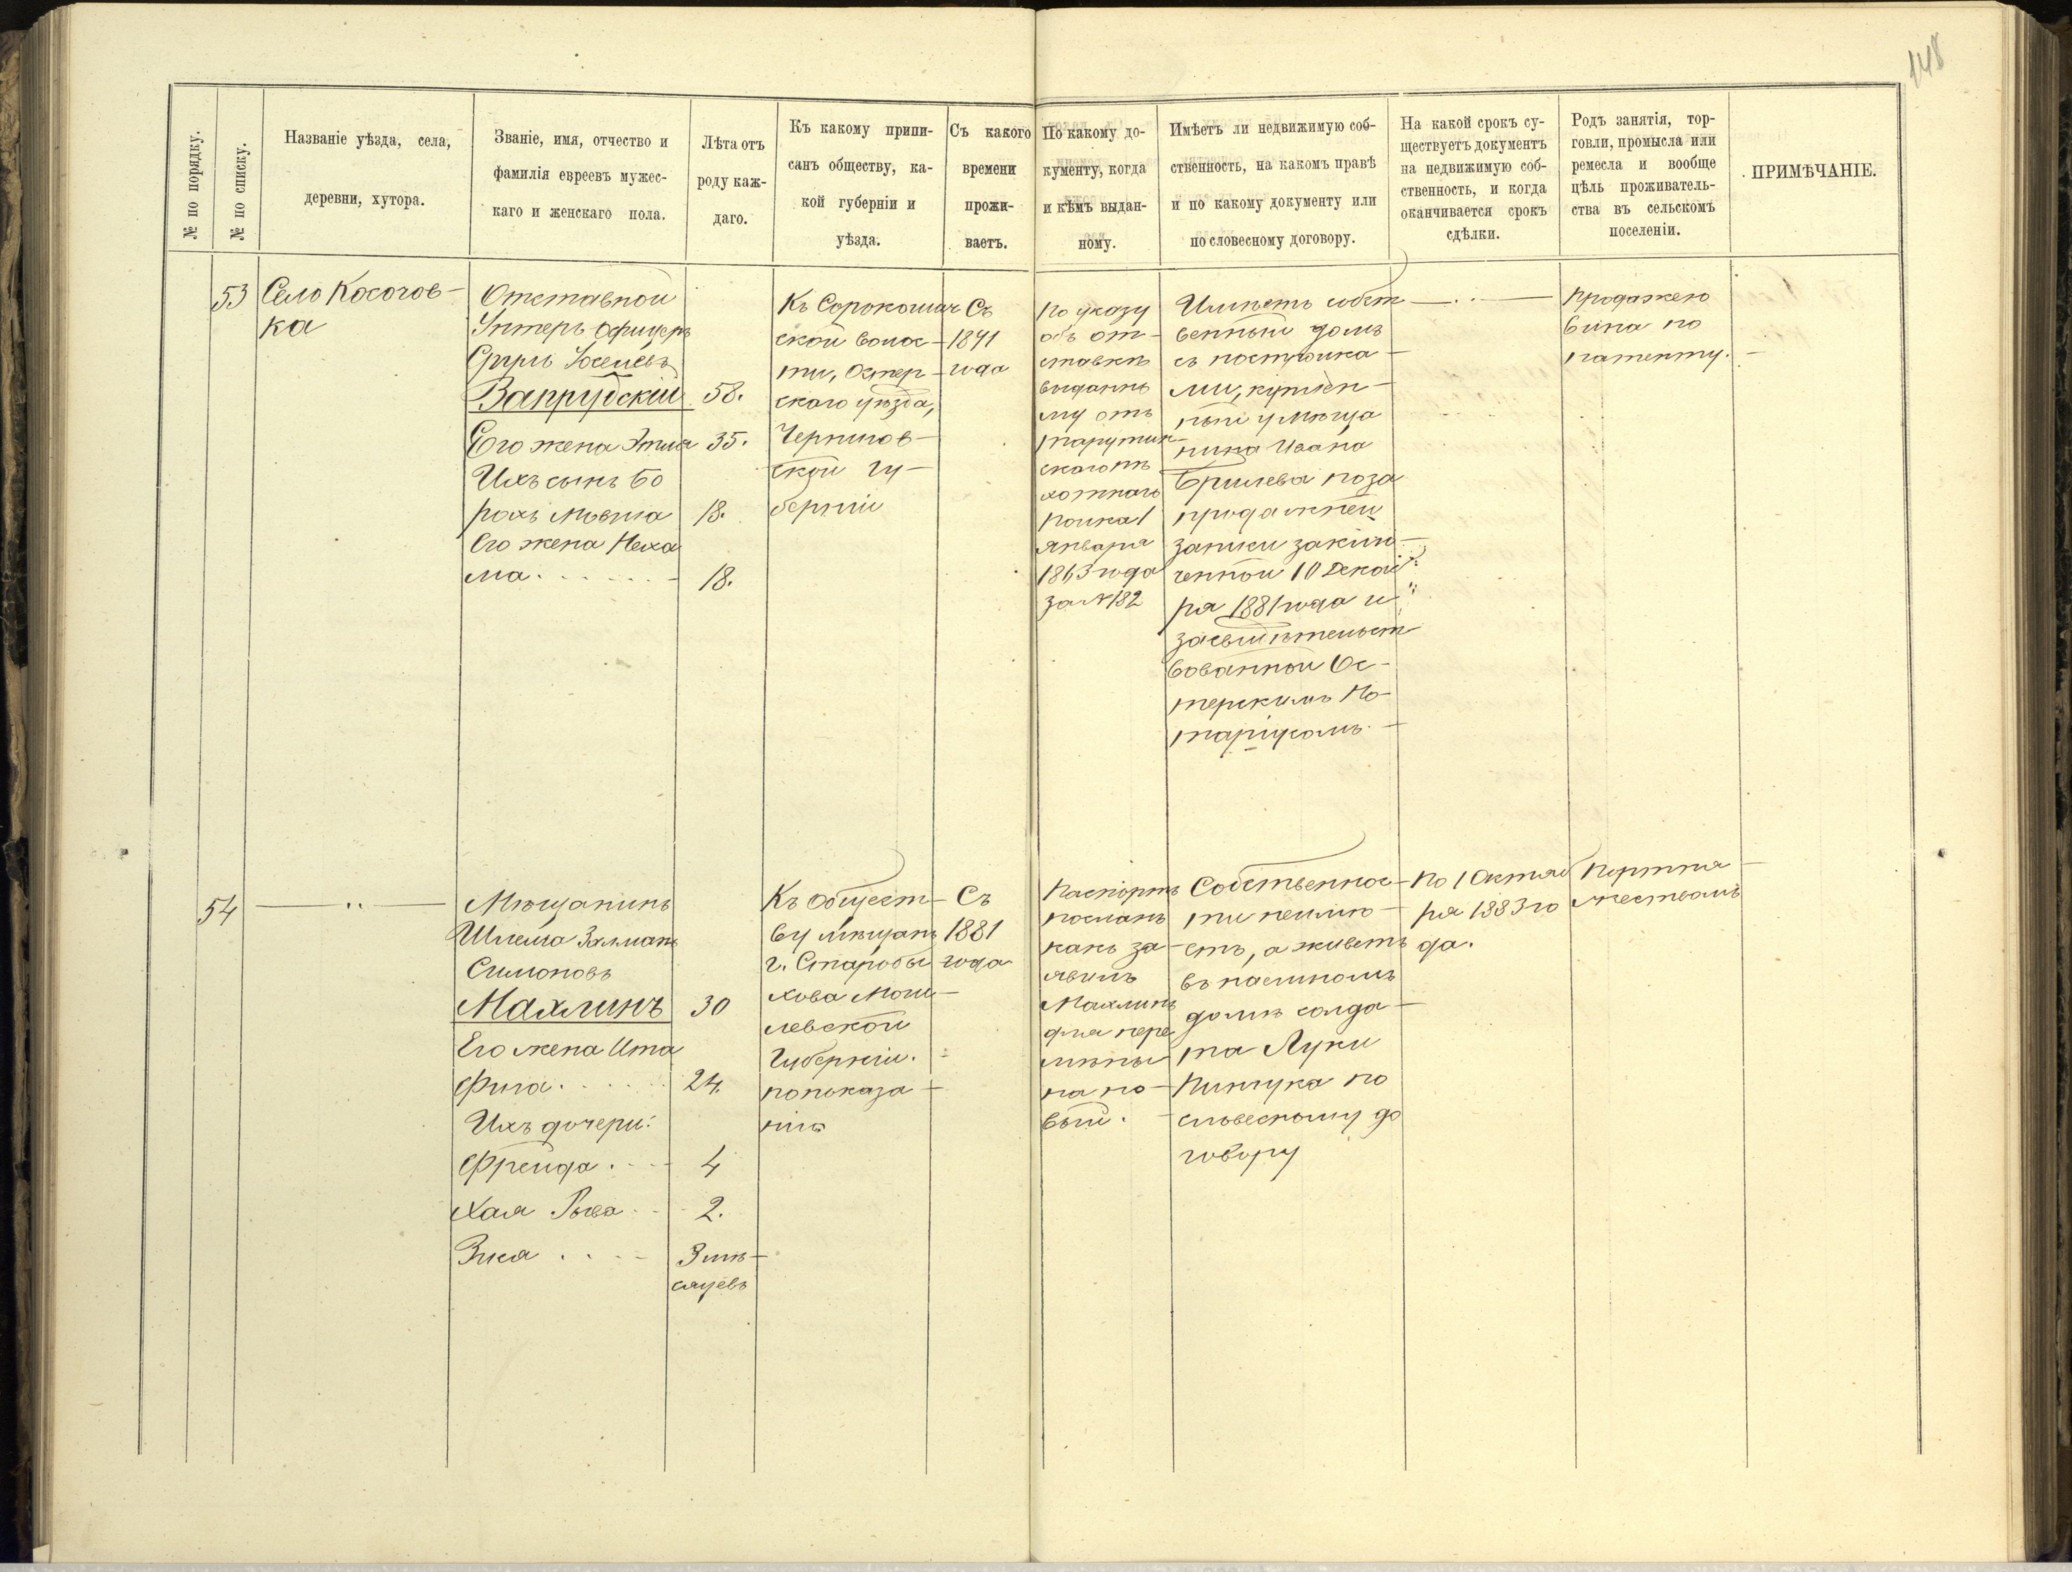 148
№ по порядку.
№ по списку.
Названіе уѣзда, села,
деревни, хутора.
Званіе, имя, отчество и
фамилія евреевъ мужес-
каго и женскаго пола.
Лѣта отъ
роду каж-
даго.
Къ какому припи-
санъ обществу, ка-
кой губерніи и
уѣзда.
Съ какого
времени
прожи-
ваетъ.
По какому до-
кументу, когда
и кѣмъ выдан-
ному.
Имѣетъ ли недвижимую соб-
ственность, на какомъ правѣ
и по какому документу или
по словесному договору.
На какой срокъ су-
ществуетъ документъ
на недвижимую соб-
ственность, и когда
оканчивается срокъ
сдѣлки.
Родъ занятія, тор-
говли, промысла или
ремесла и вообще
цѣль проживатель-
ства въ сельскомъ
поселеніи.
ПРИМѢЧАНІЕ.
53
Село Косачов-
ка
Отставной
Унтеръ-Офицеръ
Сруль
Запрудскій
58.
Его жена Этля
35.
Ихъ сынъ Бо
рохъ Мовша
18.
Его жена Неха
ма
18.
Къ Сорокошич
ской волос-
ти, Остер-
скаго уѣзда,
Чернигов-
ской гу-
берніи
Съ
1871
года
По указу
объ от-
ставкѣ
выданно
му отъ
Тарутин-
скаго пѣ
хотнаго
полка 1
Января
1863 года
за № 182
Имѣетъ собст
венный домъ
съ постройка-
ми, куплен-
ный у мѣща
нина Ивана
Брилева по за
продажней
записи заклю-
ченной 10 Декаб
ря 1881 года и
засвидѣтельст
вованной Ос-
терскимъ Но-
таріусомъ.
Продажею
вина по
патенту.
54
Мѣщанинъ
Шлема Залманъ
Симоновъ
Махлинъ
30
Его жена Ита
Фига
24.
Ихъ дочери:
Фрейда
4
Хая Рыва
2.
Зися
3 мѣ-
сяцевъ
Къ Общест-
ву мѣщанъ
г. Старобы
хова Моги-
левской
Губерніи.
по показа-
нію
Съ
1881
года
Паспортъ
посланъ
какъ за-
явилъ
Махлинъ
для пере
мѣны
на но-
вый.
Собственнос-
ти неимѣ-
етъ, а живетъ
въ наемномъ
домѣ солда-
та Луки
Пинчука по
словесному до
говору
По 1 Октяб
ря 1883 го
да.
Портня
жествомъ